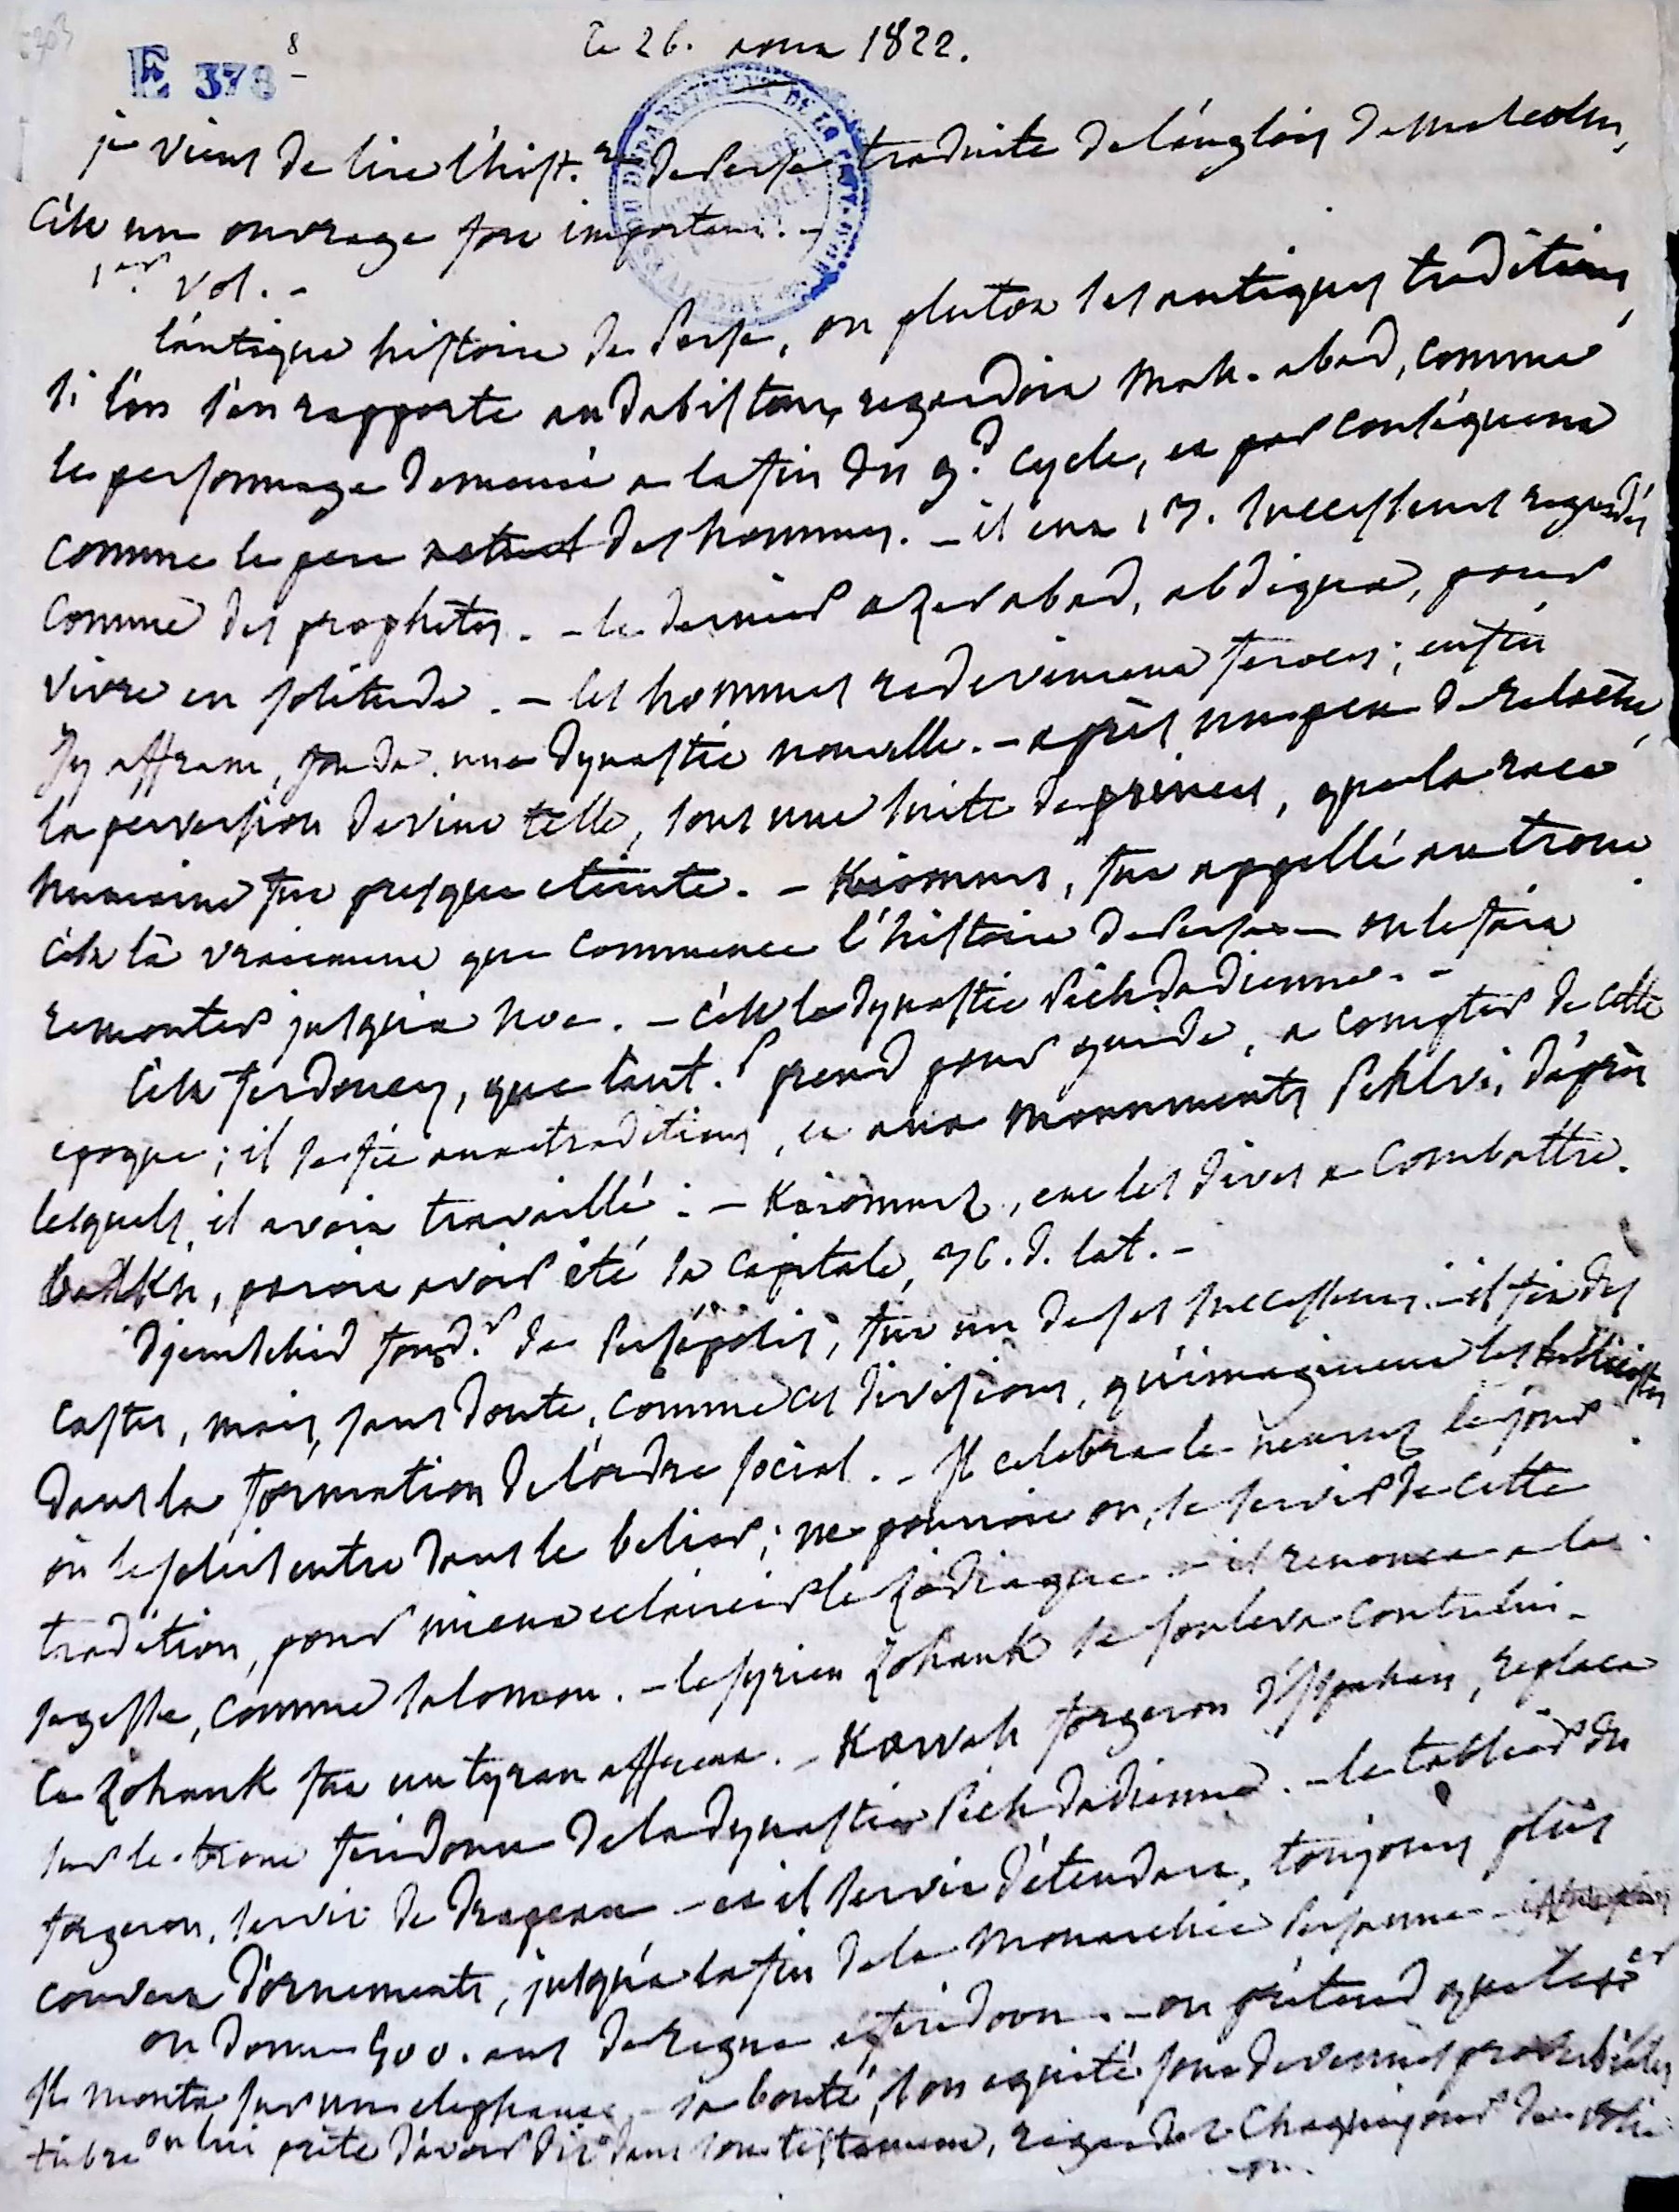 E 378 8
Ce 26. aoux 1822.
je viens de lire l'hist.re de Perse traduite de l'anglois de Malcolm,
C'est un ouvrage fort important. -
1er vol. -
l'antique histoire de Perse, ou plutox les antiques traditions,
si l'on s'en rapporte au dabistan, regardoit Mah-abad, comme
le personnage demeuré a la fin du gd. cycle, et par conséquent
comme le pere actuel des hommes. - il eut 13. successeurs regardés
comme des prophetes. - le dernier azerabad, abdiqua, pour
vivre en solitude. - les hommes redevinrent feroces; enfin
Jy affram, fonda, une dynastie nouvelle. - après un peu de relache,
la perversion devint telle, sous une suite de princes, que la race
humaine fut presque eteinte. - Kaiomurs, fut appellé au trone
c'est là vraiment que commence l'histoire de Perse - on le fait
remonter jusqu'a Noe. - c'est la dynastie Pichdadienne. -
C'est ferdoucy, que l'aut.r prend pour guide, a compter de cette
epoque; il se fie aux traditions, et aux monuments Pehlvi, d'après
lesquels, il avoit travaillé. - Kaiomurs, eut les dives a combattre.
balkh, paroit avoir été sa capitale, 36. d. lat. -
Djemschid fond.r de Persépolis, fut un de ses successeurs. - il fit des
castes, mais, sans doute, comme ces divisions, qu'imaginent les publicistes
dans la formation de l'ordre social. - Il celebra le neurouz le jour
où le soleil entre dans le belier; ne pourroit on, se servir de cette
tradition, pour mieux eclaircir le Zodiaque - il renonca a la
sagesse, comme Salomon. - le syrien Zohauk se souleva contre lui -
Ce Zohauk fut un tyran affreux. - Kawah forgeron d'ispahan, replaca
sur le trone feridoun de la dynastie Pichdadienne. - le tablier du
forgeron, servit de drapeau - et il servit d'etendart, toujours plus
couvert d'ornements, jusqu'a la fin de la monarchie Persanne -
on donne 500. ans de regne a feridoon. - on prétend que le 1er
Il monta sur un elephant, - sa bonté, son equité sont devenues proverbiales
on lui prete d'avoir dit dans son testament, regardez chaque jour de votre